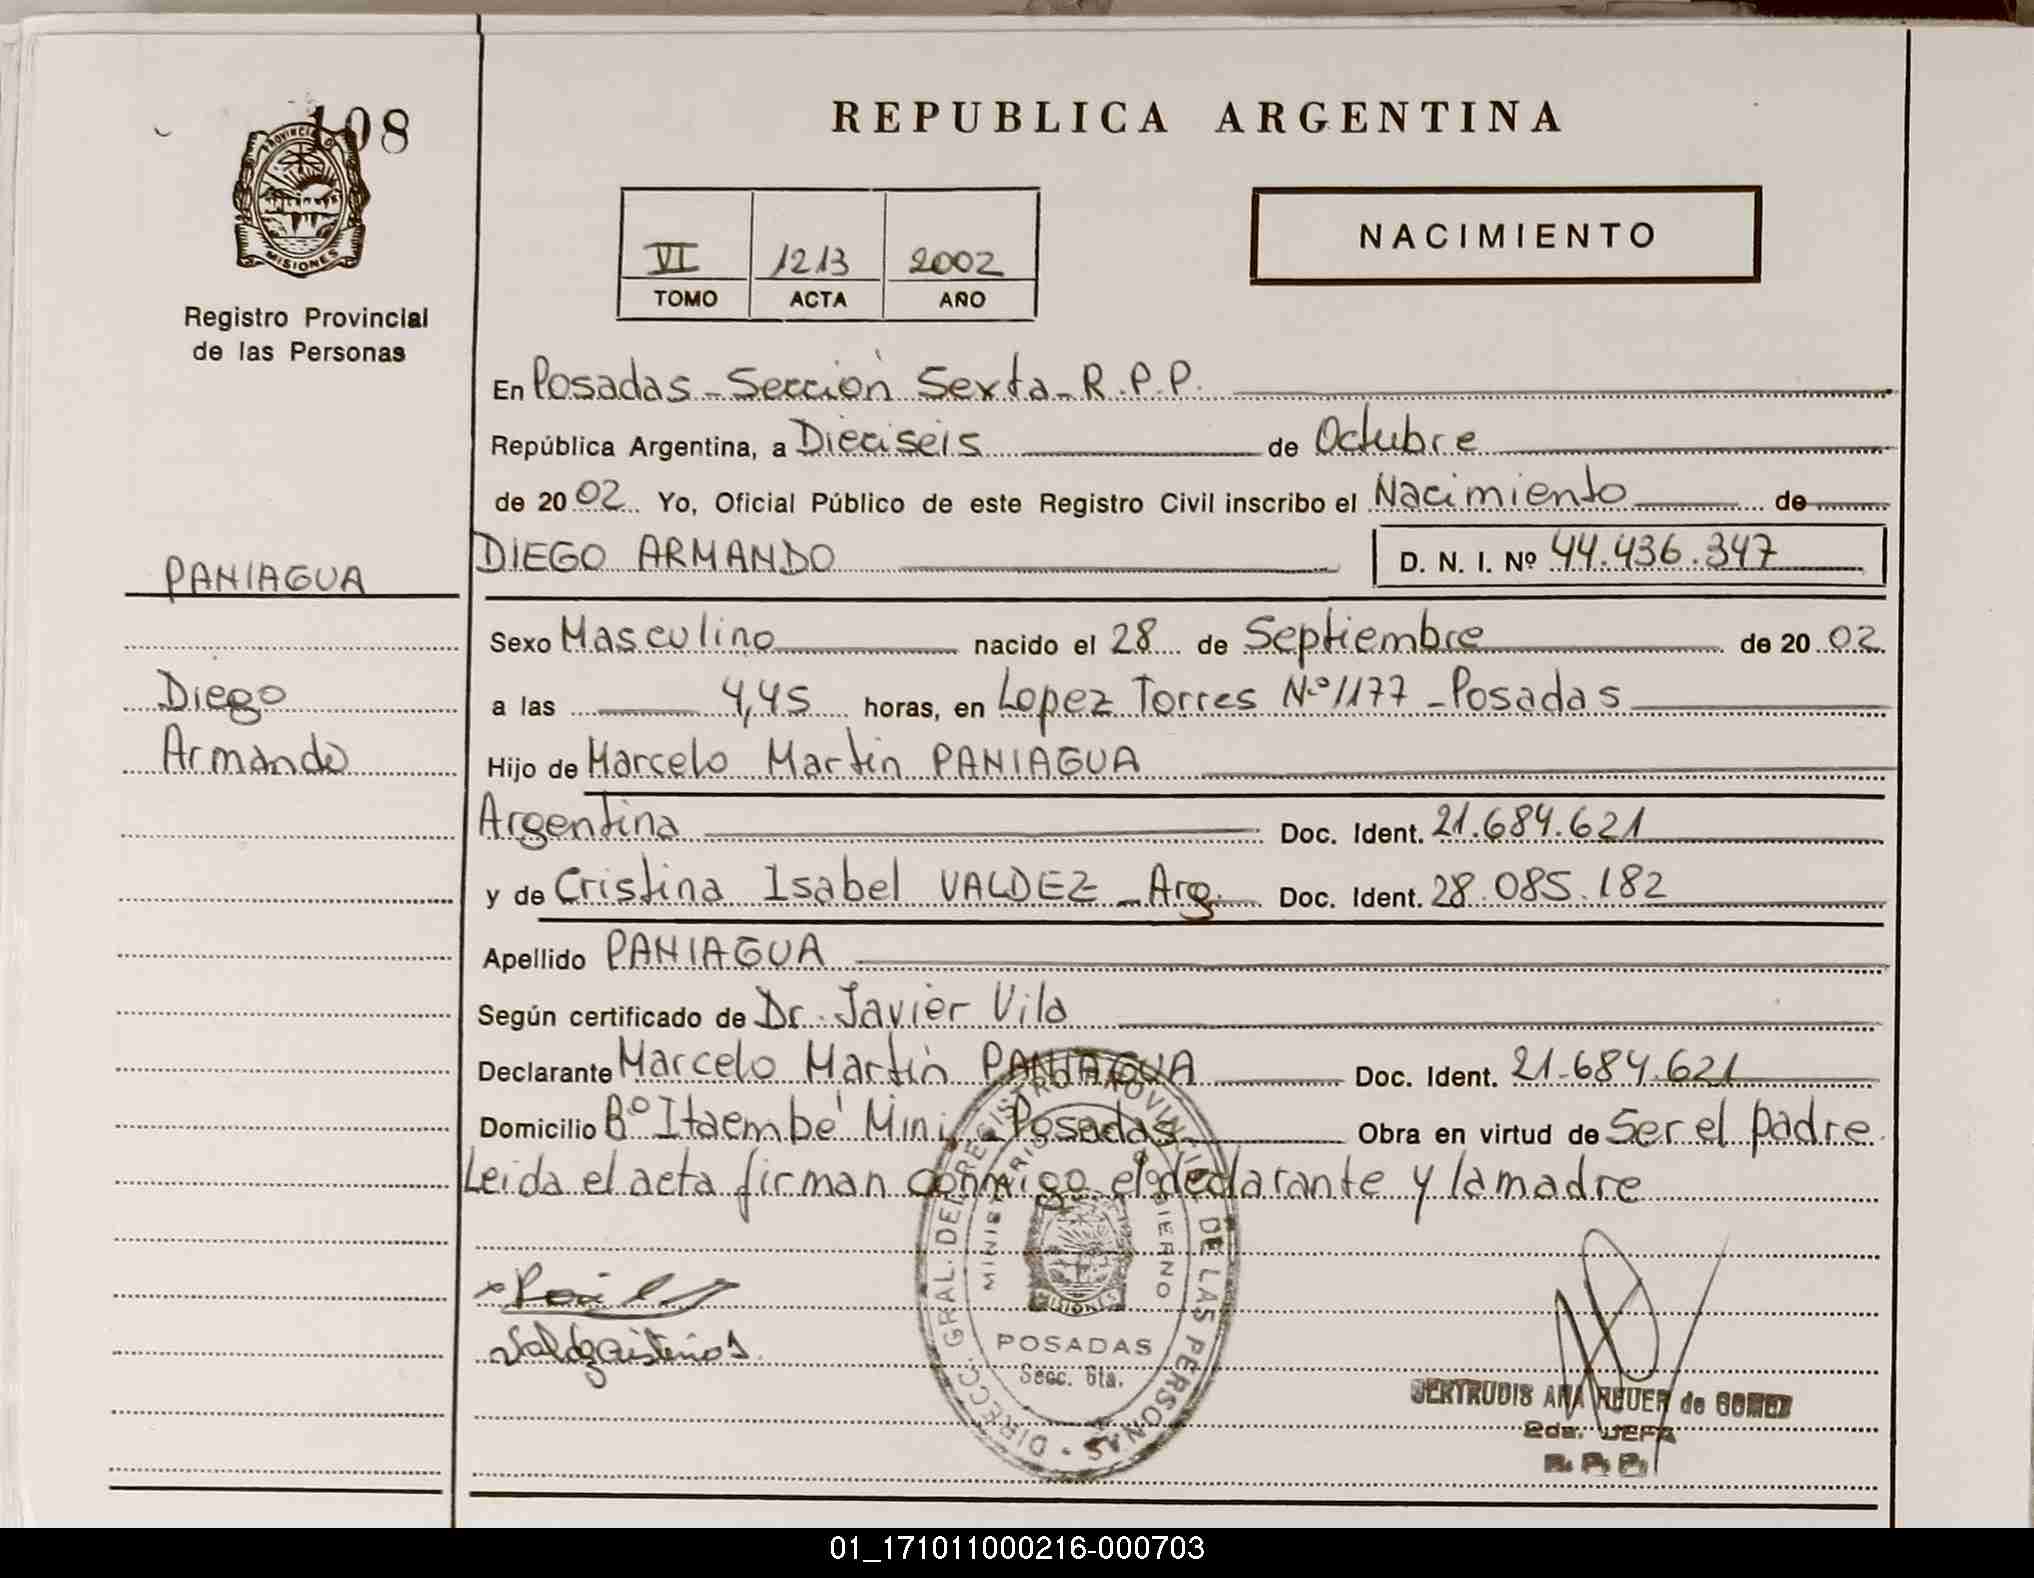 108
PROVINCIA DE
MISIONES
Registro Provincial
de las Personas
REPUBLICA ARGENTINA
VI 1213 2002
TOMO ACTA AÑO
NACIMIENTO
En Posadas - Sección Sexta - R.P.P.
República Argentina, a Dieciseis de Octubre
de 2002 Yo, Oficial Público de este Registro Civil inscribo el Nacimiento de
PANIAGUA
DIEGO ARMANDO D. N. I. Nº 44.436.347
Sexo Masculino nacido el 28 de Septiembre de 2002
Diego
a las 4,45 horas, en Lopez Torres Nº 1177 - Posadas
Armando
Hijo de Marcelo Martín PANIAGUA
Argentina Doc. Ident. 21.684.621
y de Cristina Isabel VALDEZ - Arg. Doc. Ident. 28.085.182
Apellido PANIAGUA
Según certificado de Dr. Javier Vila
Declarante Marcelo Martín PANIAGUA Doc. Ident. 21.684.621
Domicilio Bº Itaembé Miní - Posadas Obra en virtud de Ser el padre
Leida el acta firman conmigo el declarante y la madre
DIRECC. GRAL. DEL REGISTRO PROVINCIAL DE LAS PERSONAS
MINISTERIO DE GOBIERNO
MISIONES
POSADAS
Secc. 6ta.
GERTRUDIS ANA REUER de GOMEZ
2da. JEFA
R. P. P.
01_171011000216-000703